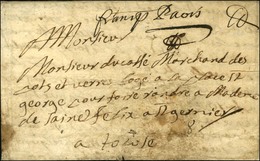 franc Paris
A Monsieur
Monsieur ducassé Marchand des
pots et verre logé a la place st
george pour faire rendre a Madame
de Saint felix a St garnier
a tolose